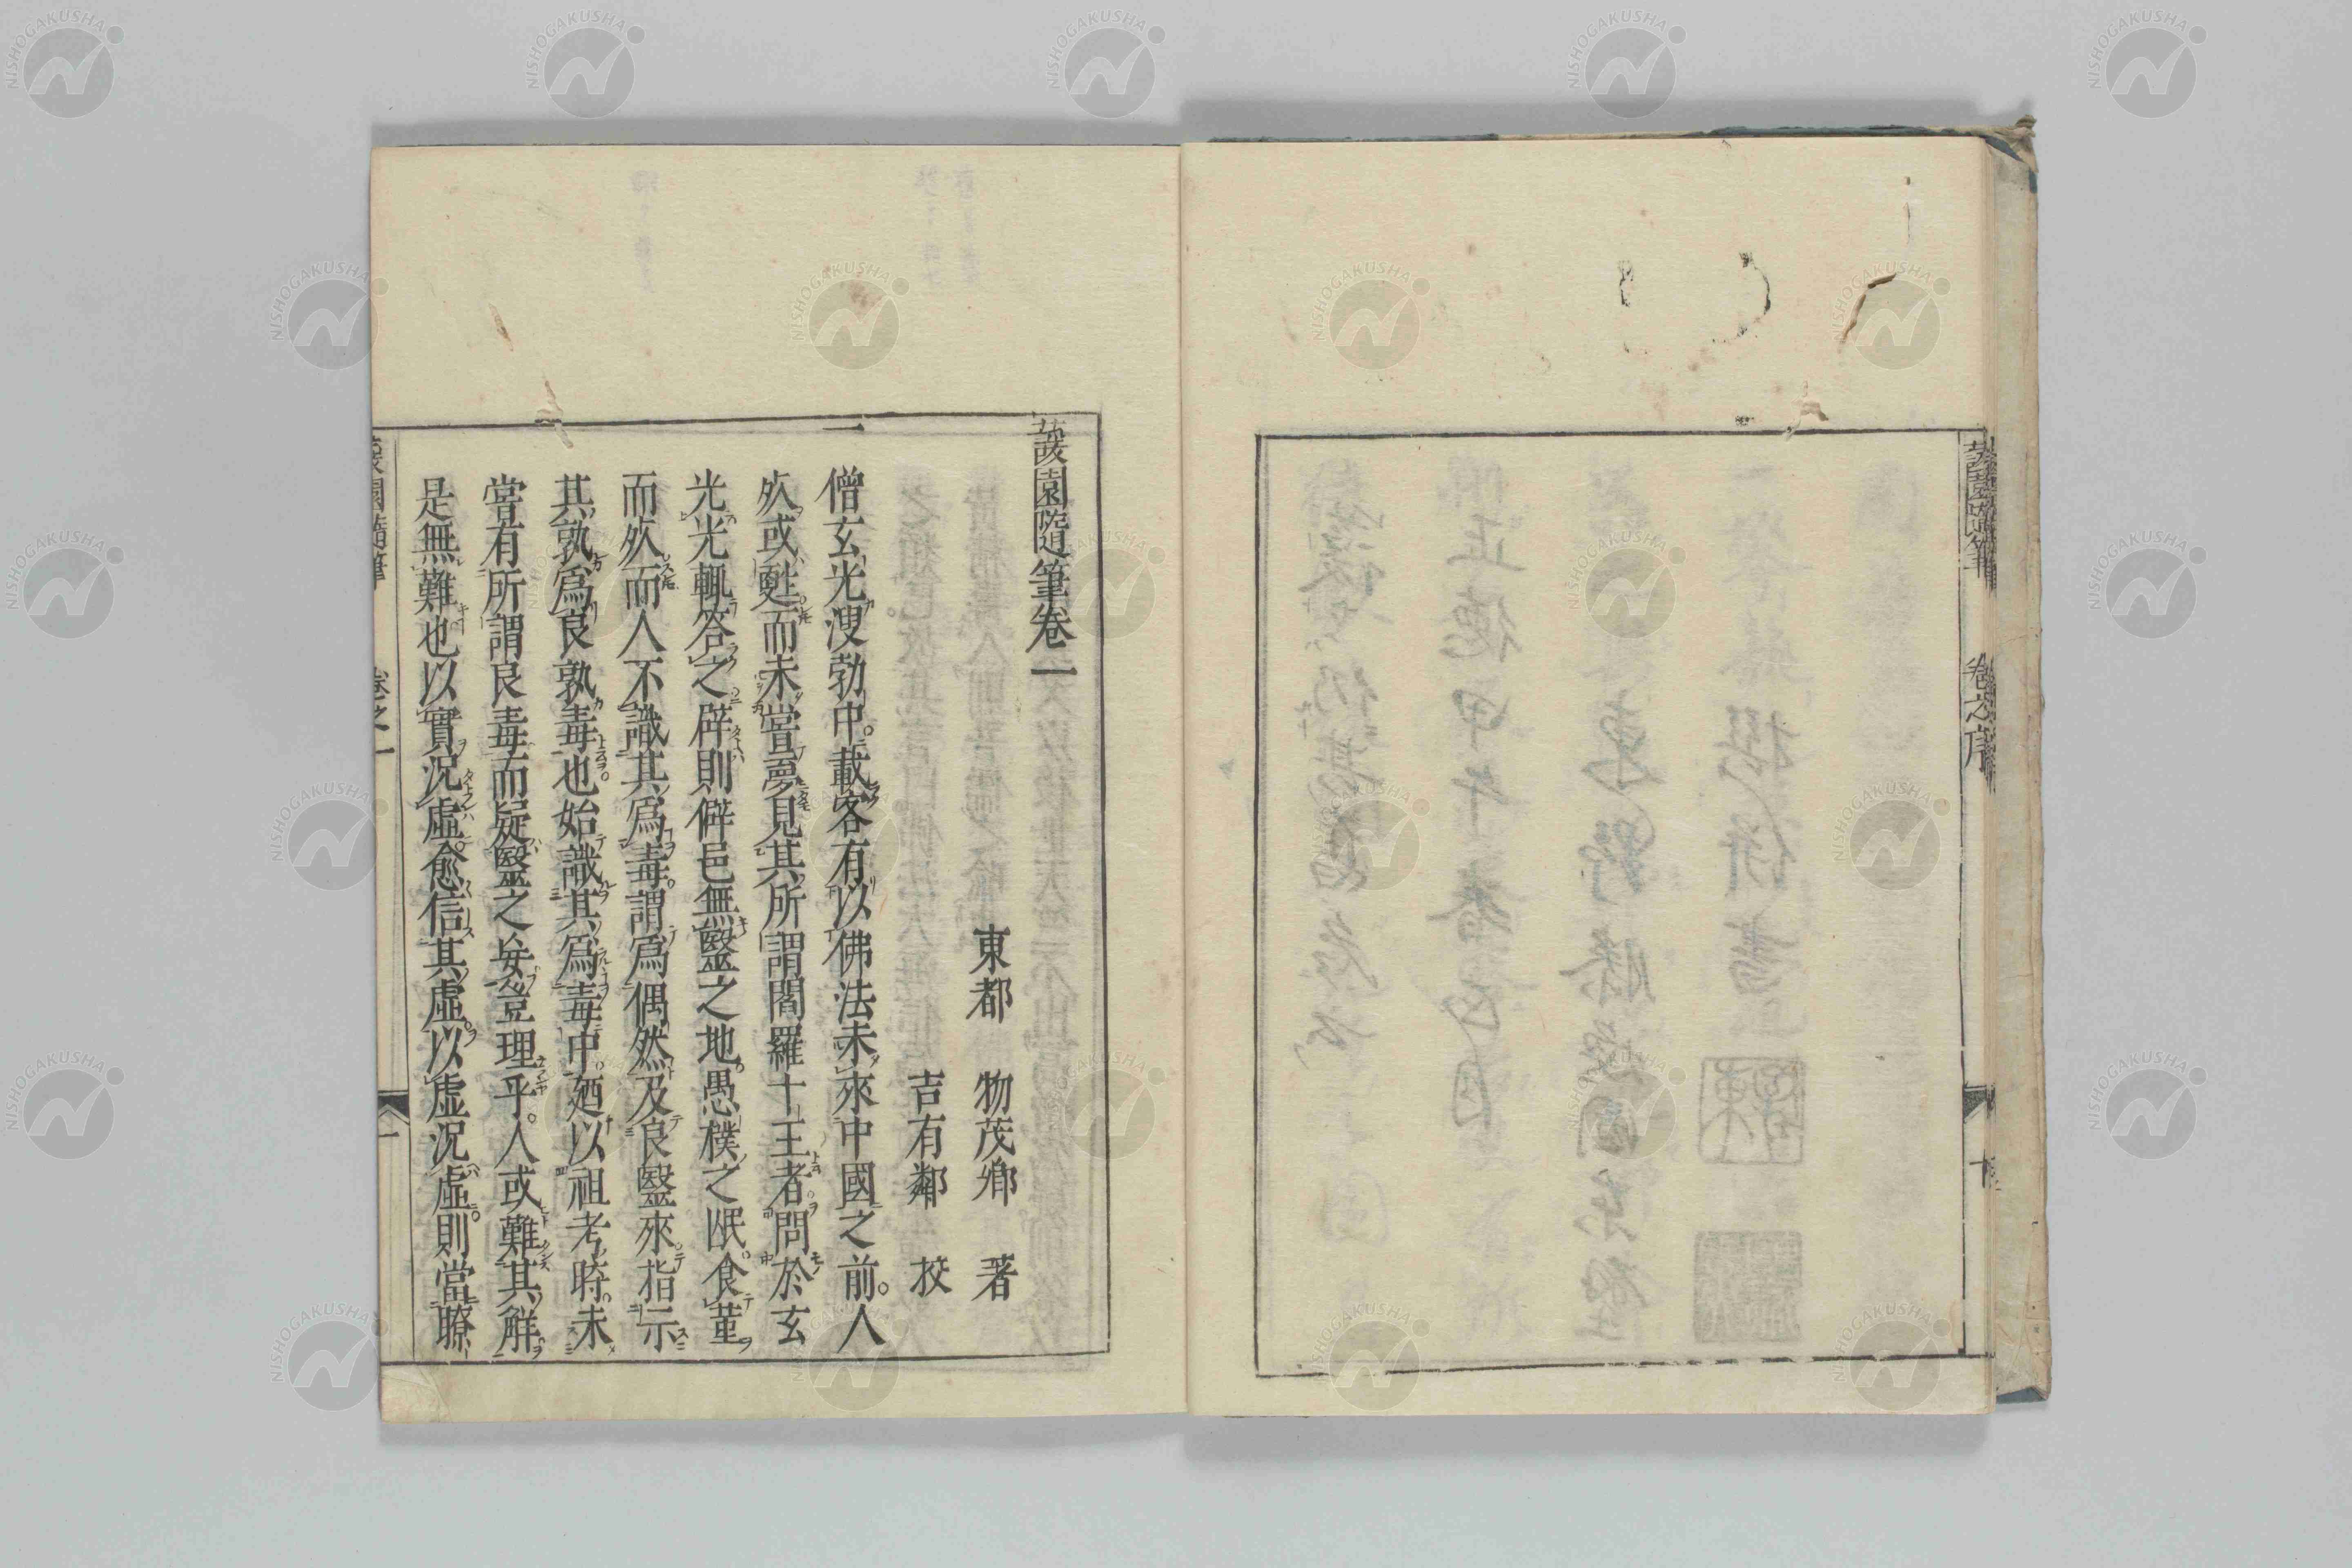 蘐園隨筆 卷之序
蘐園隨筆卷一
東都 物茂卿 著
吉有鄰 校
一
僧玄光溲勃中。載客有以佛法未來中國之前。人
死或甦而未嘗夢見其所謂閻羅十王者。問於玄
光光輒答之。辟則僻邑無毉之地。愚樸之氓。食菫
而死而人不識其爲毒。謂爲偶然及良毉來。指示
其孰爲良孰毒也。始識其爲毒中。廼以祖考時。未
嘗有所謂良毒而疑毉之妄。豈理乎。人或難其解。
是無難也以實況虛。愈信其虛。以虛況虛。則當瞭
蘐園隨筆 卷之一 一
NISHOGAKUSHA